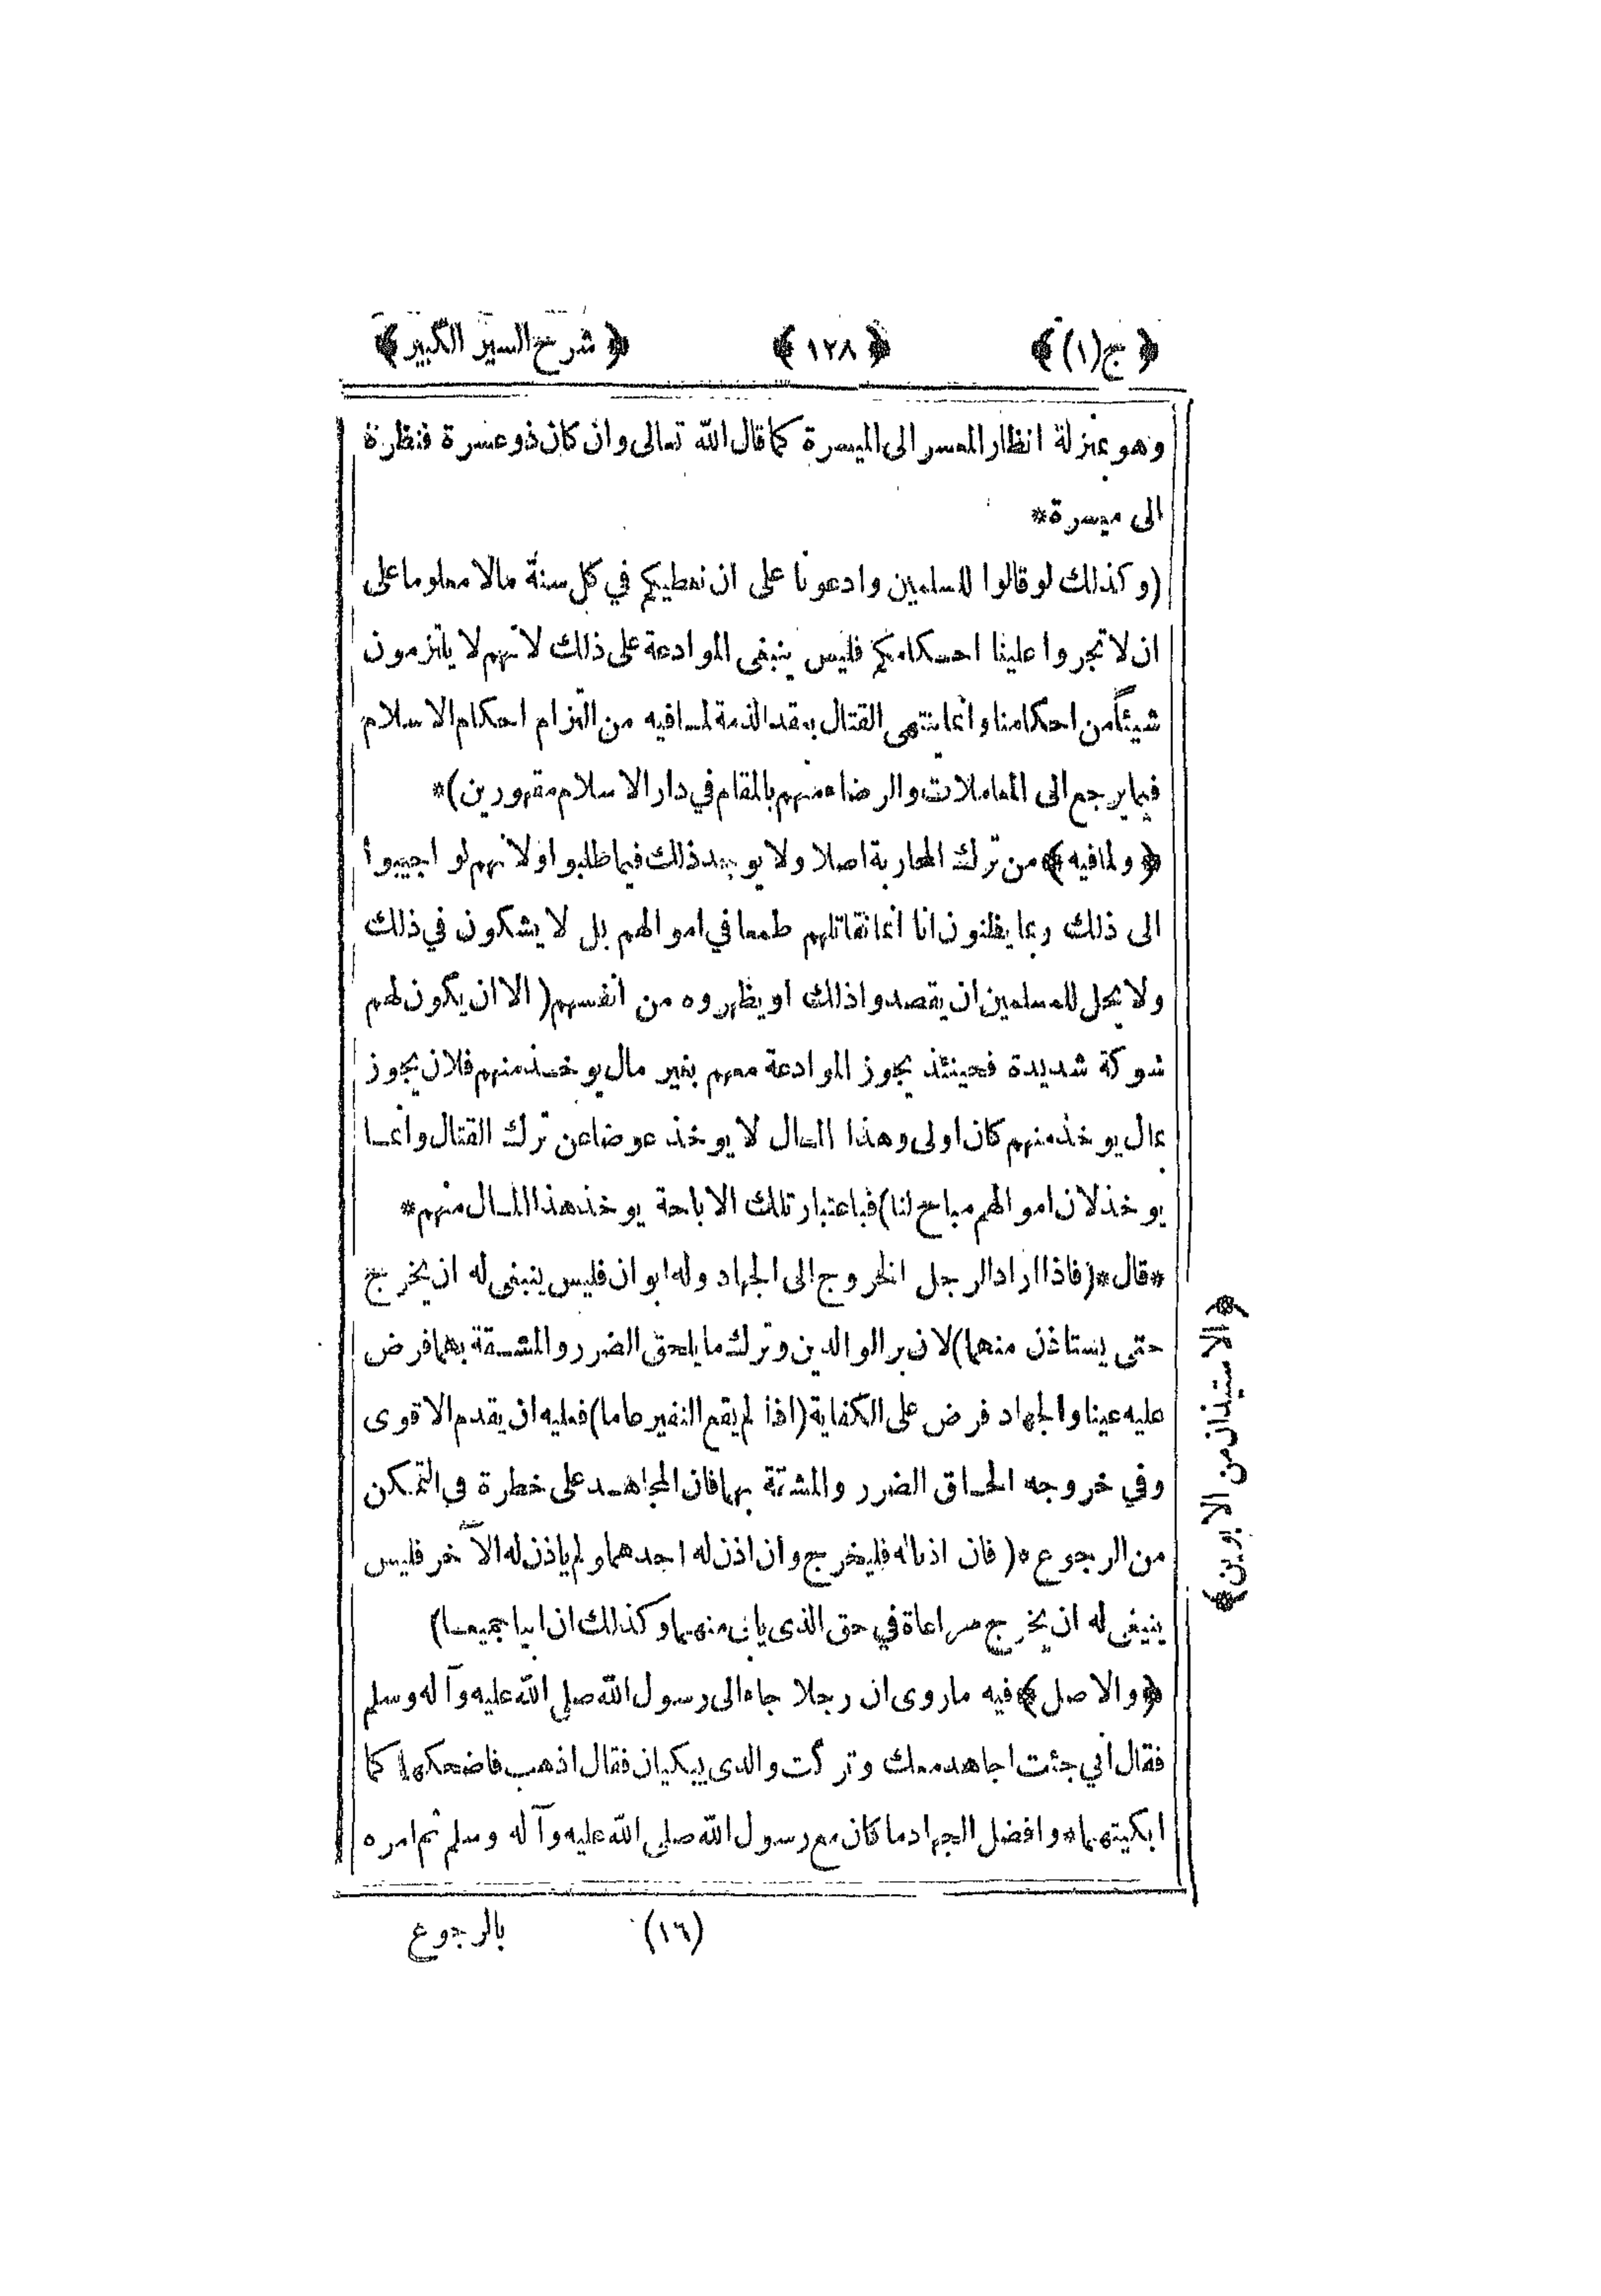 ﴿ ج(١) ﴾ ﴿ ١٢٨ ﴾ ﴿ شرح السير الكبير ﴾
وهو بمنزلة انظار المعسر الى الميسرة كما قال الله تعالى وان كان ذو عسرة فنظرة
الى ميسرة*
(وكذلك لو قالوا للمسلمين وادعونا على ان نعطيكم في كل سنة مالا معلوما على
ان لا تجروا علينا احكامكم فليس ينبغى الموادعة على ذلك لانهم لا يلتزمون
شيئاً من احكامنا وانما ينتهى القتال بعقد الذمة لما فيه من التزام احكام الاسلام
فيما يرجع الى المعاملات والرضاء منهم بالمقام في دار الاسلام مقهورين)*
﴿ ولما فيه ﴾ من ترك المحاربة اصلا ولا يوجد ذلك فيما طلبوا ولانهم لو اجيبوا
الى ذلك ربما يظنون انا انما نقاتلهم طمعا في اموالهم بل لا يشكون في ذلك
ولا يحل للمسلمين ان يقصدوا ذلك او يظهروه من انفسهم (الا ان يكون لهم
شوكة شديدة فحينئذ يجوز الموادعة معهم بغير مال يوخذ منهم فلان يجوز
بمال يوخذ منهم كان اولى وهذا المال لا يوخذ عوضا عن ترك القتال وانما
يوخذ لان اموالهم مباح لنا) فباعتبار تلك الاباحة يوخذ هذا المال منهم*
*قال* (فاذا اراد الرجل الخروج الى الجهاد وله ابوان فليس ينبغى له ان يخرج
حتى يستاذن منهما) لان بر الوالدين وترك ما يلحق الضرر والمشقة بهما فرض
عليه عينا والجهاد فرض على الكفاية (اذا لم يقع النفير عاما) فعليه ان يقدم الاقوى
وفي خروجه الحاق الضرر والمشقة بهما فان المجاهد على خطرة في التمكن
من الرجوع* (فان اذنا له فليخرج وان اذن له احدهما ولم ياذن له الآخر فليس
ينبغى له ان يخرج مراعاة في حق الذى يابى منهما وكذلك ان ابيا جميعا)
﴿ والاصل ﴾ فيه ما روى ان رجلا جاء الى رسول الله صلى الله عليه وآله وسلم
فقال انى جئت اجاهد معك وتركت والدى يبكيان فقال اذهب فاضحكهما كما
ابكيتهما* وافضل الجهاد ما كان مع رسول الله صلى الله عليه وآله وسلم ثم امره
﴿ الاستيذان من الابوين ﴾
(١٦) بالرجوع